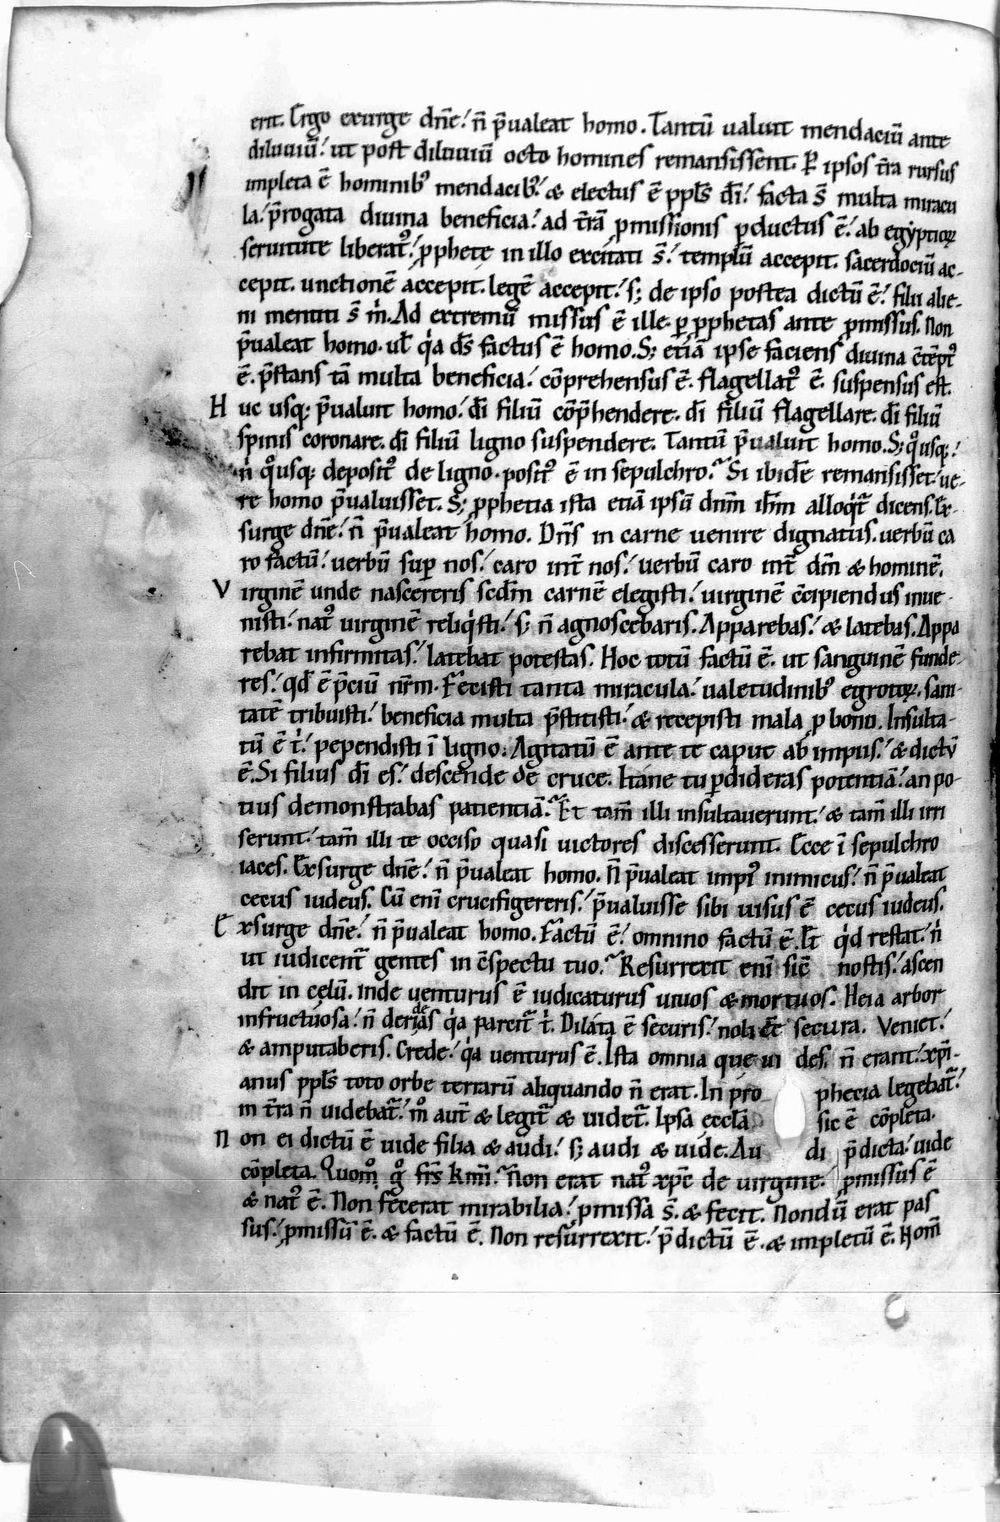 erit. Ergo exurge dn̄e! n̄ p̄ualeat homo. Tantū ualuit mendaciū ante
diluuiū! ut post diluuiū octo homines remansissent. P̱ ipsos t̄ra rursus
impleta ē hominibꝰ mendacibꝰ! & electus ē pp̄ls dī! facta s̄ multa miracu
la! p̄rogata diuina beneficia! ad t̄rā ꝓmissionis ꝑductus ē! ab egyptioꝝ
seruitute liberatꝰ! ꝓphete in illo excitati s̄! templū accepit. sacerdociū ac-
cepit. unctionē accepit. legē accepit! sꝫ de ipso postea dictū ē! filii alie-
ni mentiti s̄ m̍. Ad extremū missus ē ille. ꝑ ꝓphetas ante ꝓmissus. Non
p̄ualeat homo. ul̄ q̍a dſ̄ factus ē homo. Sꝫ etiā ipse faciens diuina c̄tēptꝰ
ē. p̄stans tā multa beneficia! cōprehensus ē. flagellatꝰ ē. suspensus est.
H uc usqꝫ p̄ualuit homo! dī filiū cōp̄hendere. dī filiū flagellare. dī filiū
spinis coronare. dī filiū ligno suspendere. Tantū p̄ualuit homo. Sꝫ qͦusqꝫ!
n̍ qͦusqꝫ depositꝰ de ligno. positꝰ ē in sepulchro. Si ibidē remansisset! ue-
re homo p̄ualuisset. Sꝫ ꝓphetia ista etiā ipsū dnm̄ ihm̄ alloq̍t̄ dicens. Ex-
surge dn̄e! n̄ p̄ualeat homo. Dn̄s in carne uenire dignatus. uerbū ca
ro factū! uerbū sup̱ nos! caro int̄ nos! uerbū caro int̄ dm̄ & hominē.
V irginē unde nascereris scdm̄ carnē elegisti! uirginē c̄cipiendus inue-
nisti! natꝰ uirginē reliq̍sti! sꝫ n̄ agnoscebaris. Apparebas! & latebas. Appa
rebat infirmitas! latebat potestas. Hoc totū factū ē. ut sanguinē funde-
res! qd̄ ē p̄ciū nr̄m. Fecisti tanta miracula! ualetudinibꝰ egrotoꝝ. sani-
tatē tribuisti! beneficia multa p̄stitisti! & recepisti mala ꝓ bono. Insulta-
tū ē t̍! pependisti ī ligno. Agitatū ē ante te caput ab impiis! & dictū
ē. Si filius dī es! descende de cruce. Itane tu ꝑdideras potentiā! an po-
tius demonstrabas patientiā. Et tam̄ illi insultauerunt! & tam̄ illi irri
serunt! tam̄ illi te occiso quasi uictores discesserunt. Ecce ī sepulchro
iaces. Exsurge dn̄e! n̄ p̄ualeat homo. N̄ p̄ualeat impiꝰ inimicus! n̄ p̄ualeat
cecus iudeus. Cū enī crucifigereris! p̄ualuisse sibi uisus ē cecus iudeus.
E xsurge dn̄e! n̄ p̄ualeat homo. Factū ē! omnino factū ē. Et q̍d restat! n̍
ut iudicent̄ gentes in c̄spectu tuo. Resurrexit enī sic̄ nostis! ascen
dit in celū. inde uenturus ē iudicaturus uiuos & mortuos. Heia arbor
infructuosa! n̄ derideas q̍a parcit̄ t̍. Dilata ē securis! noli ēē secura. Veniet!
& amputaberis. Crede! q̍a uenturus ē. Ista omnia que ui des. n̄ erant! xp̄i-
anus pp̄ls toto orbe terrarū aliquando n̄ erat. In pro phecia legebat̄!
in t̄ra n̄ uidebat̄! mͦ aut̄ & legit̄ & uidet̄. Ipsa eccl̄a sic ē cōpleta.
N on ei dictū ē uide filia & audi! sꝫ audi & uide. Au di p̄dicta! uide
cōpleta. Quomͦ gͦ fr̄s km̄i. n̄on erat natꝰ xp̄c de uirgine! ꝓmissus ē
& natꝰ ē. Non fecerat mirabilia! ꝓmissa s̄. & fecit. Nondū erat pas
sus! ꝓmissū ē. & factū ē. Non resurrexit! p̄dictū ē. & impletū ē. Nom̄